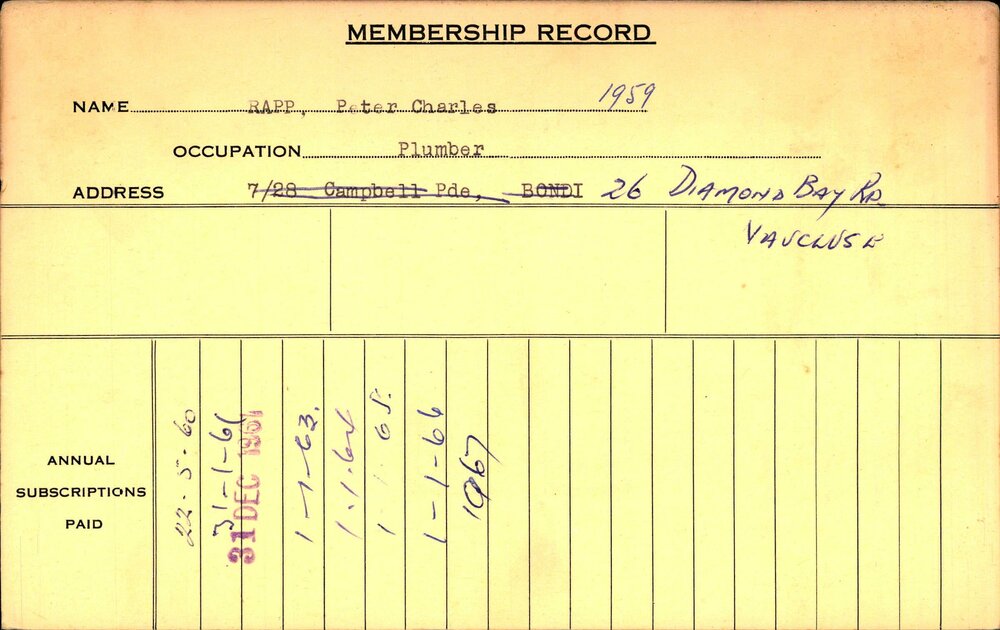 MEMBERSHIP RECORD
NAME RAPP, Peter Charles 1959
OCCUPATION Plumber
ADDRESS 7/28 Campbell Pde, BONDI 26 DIAMOND BAY RD
VAUCLUSE
ANNUAL
SUBSCRIPTIONS
PAID
22-5-60
31-1-61
31 DEC 1961
1-1-63.
1.1.64
1 1 65.
1-1-66
1967